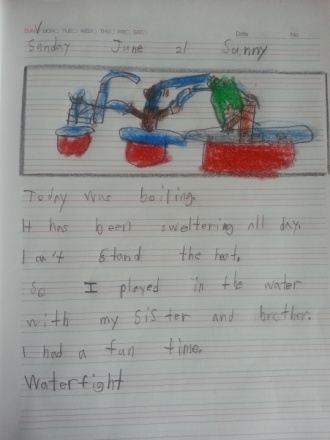 SUN MON TUE WED THU FRI SAT Date No
Sunday June 21 Sunny
Today was boiling.
It has been sweltering all day.
I can't stand the heat.
So I played in the water
with my sister and brother.
I had a fun time.
Waterfight